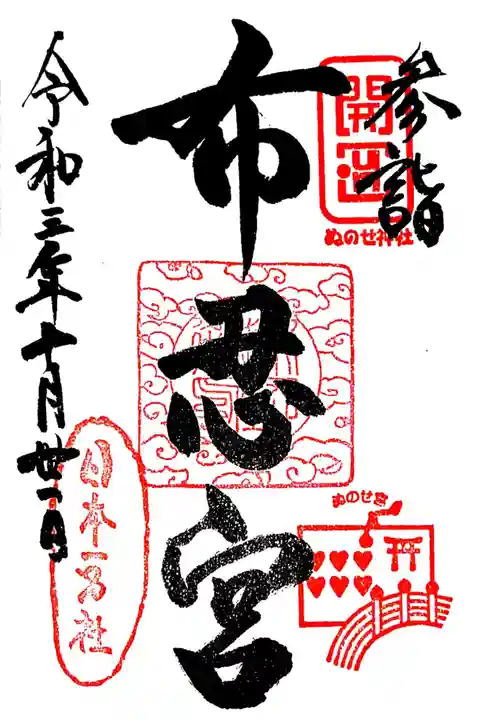 参詣
開運
ぬのせ神社
布忍宮
ぬのせ宮
令和三年十月廿一日
日本一万社